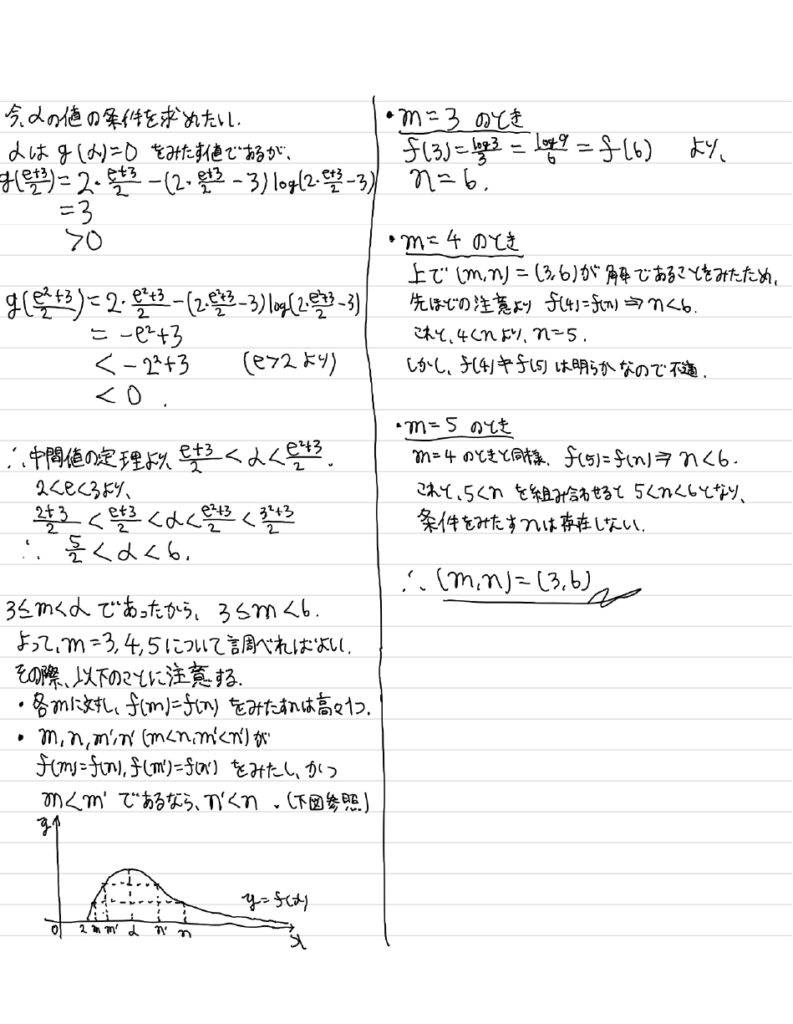 今、αの値の条件を求めたい。
αは g(α)=0 をみたす値であるが、
g(\frac{e+3}{2})=2・\frac{e+3}{2}-(2・\frac{e+3}{2}-3)log(2・\frac{e+3}{2}-3)
=3
>0
g(\frac{e²+3}{2})=2・\frac{e²+3}{2}-(2・\frac{e²+3}{2}-3)log(2・\frac{e²+3}{2}-3)
= -e²+3
< -2²+3 (e>2より)
< 0 .
∴中間値の定理より、\frac{e+3}{2}<α<\frac{e²+3}{2}.
2<e<3より、
\frac{2+3}{2}<\frac{e+3}{2}<α<\frac{e²+3}{2}<\frac{3²+3}{2}
∴ \frac{5}{2}<α<6.
3≤m<αであったから、3≤m<6.
よって、m=3,4,5について調べればよい.
その際、以下のことに注意する.
・各mに対し、f(m)=f(n)をみたすnは高々1つ.
・m,n,m',n'(m<n,m'<n')が
f(m)=f(n),f(m')=f(n')をみたし、かつ
m<m'であるなら、n'<n .(下図参照)
y
y=f(x)
0 2 m m' α n' n x
・m=3 のとき
f(3)=\frac{log3}{3}=\frac{log9}{6}=f(6) より、
n=6.
・m=4 のとき
上で(m,n)=(3,6)が解であることをみたため、
先ほどの注意より f(4)=f(n)⇒n<6.
これと、4<nより、n=5.
しかし、f(4)≠f(5)は明らかなので不適.
・m=5 のとき
m=4のときと同様、f(5)=f(n)⇒n<6.
これと、5<nを組み合わせると5<n<6となり、
条件をみたすnは存在しない.
∴(m,n)=(3,6)